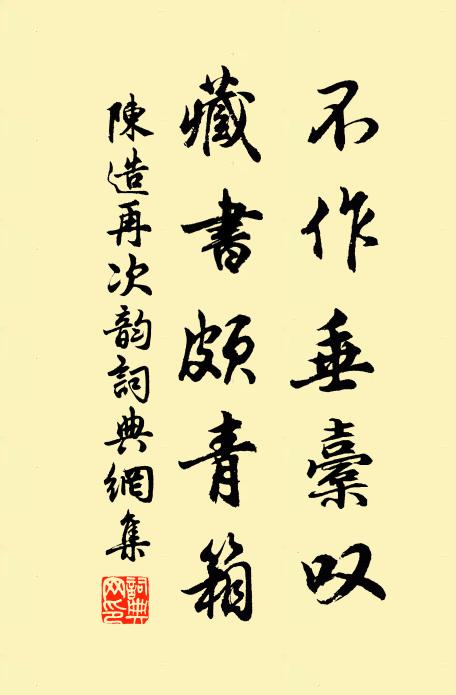 不作垂橐叹
藏書頗青箱
陳造再次韵詞典網集
詞典网印